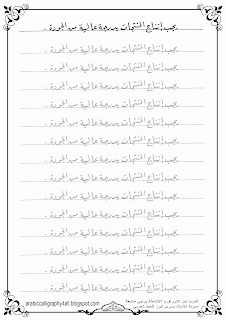 يجب إنتاج المنتجات بدرجة عالية من الجودة .
يجب إنتاج المنتجات بدرجة عالية من الجودة .
يجب إنتاج المنتجات بدرجة عالية من الجودة .
يجب إنتاج المنتجات بدرجة عالية من الجودة .
يجب إنتاج المنتجات بدرجة عالية من الجودة .
يجب إنتاج المنتجات بدرجة عالية من الجودة .
يجب إنتاج المنتجات بدرجة عالية من الجودة .
يجب إنتاج المنتجات بدرجة عالية من الجودة .
يجب إنتاج المنتجات بدرجة عالية من الجودة .
يجب إنتاج المنتجات بدرجة عالية من الجودة .
يجب إنتاج المنتجات بدرجة عالية من الجودة .
يجب إنتاج المنتجات بدرجة عالية من الجودة .
يجب إنتاج المنتجات بدرجة عالية من الجودة .
لمزيد من
arabiccalligraphy4all.blogspot.com